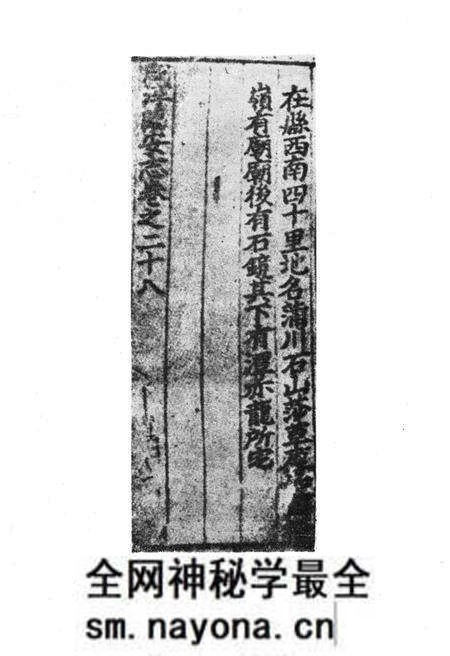 在縣西南四十里地名蒲川石山
嶺有廟廟後有石鏡其下有潭亦龍所宅
咸淳臨安志卷之二十八
全网神秘学最全
sm.nayona.cn